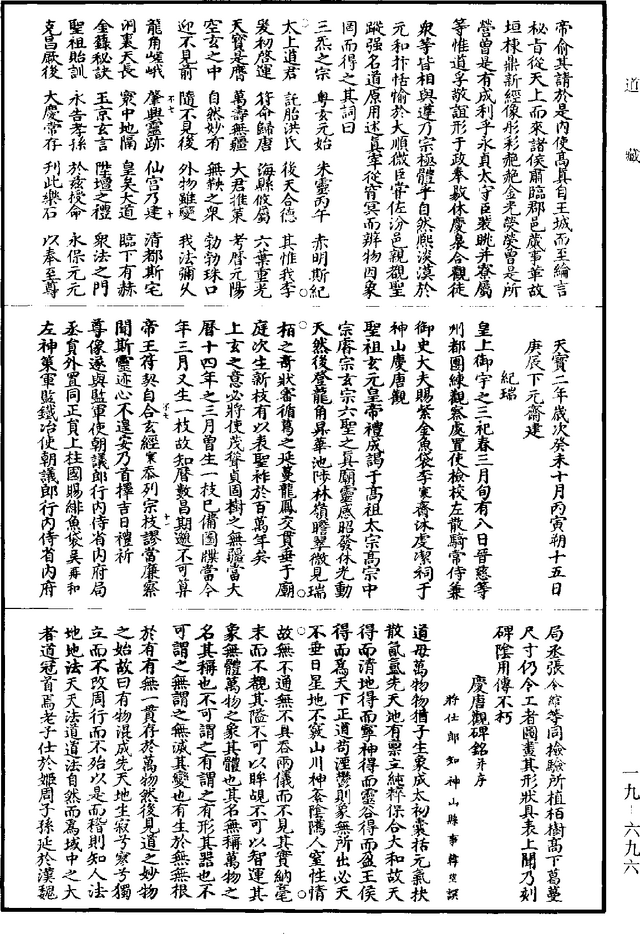 道藏
帝俞其請於是内使髙真自王城而至綸言
秘旨從天上而來諸侯肅臨郡邑嚴事革故
垣棟鼎新經像彤彩赩赩金光熒熒曾是所
營曽是有成利乎永貞太守臣裴朓并寮屬
等惟道孚敬誼形于政奉歇休慶泉合觀徒
衆等皆相與遵乃宗極體乎自然熈淡漠於
元和拤恬愉於大順微臣甞佐汾邑親觀聖
蹤强名道原用述真宰從窅冥而辨物因象
罔而得之其詞曰
三炁之宗 粤玄元始 朱靈丙午 赤明斯紀
太上道君 託胎洪氏 後天合德 其惟我李
爰初啓運 符命歸唐 海縣攸屬 六葉重光
天寶是膺 萬壽無疆 大君推策 考曆元陽
空玄之中 自然妙有 無鞅之衆 勃勃珠口
迎不見前 隨不見後 外物雖變 我法彌久
龍角嵯峨 肇興靈跡 仙宫乃建 清都斯宅
洞裏天長 寰中地隔 皇矣大道 臨下有赫
金籙秘訣 玉京玄言 陛壇之禮 衆法之門
聖祖貽訓 永告孝孫 於兹授命 永保元元
克昌厥後 大慶常存 刊此樂石 以奉至尊
天寶二年歳次癸未十月丙寅朔十五日
庚辰下元齋建
紀瑞
皇上御宇之三祀春三月旬有八日晉慈等
州都團練觀察處置使檢校左散騎常侍兼
御史大夫賜紫金魚袋李寰齋沐虔潔祠于
神山慶唐觀
聖祖玄元皇帝禮成謁于髙祖太宗髙宗中
宗睿宗玄宗六聖之真廟靈感昭發休光動
天然後登龍角昇華池陟林嶺瞻翠微見瑞
栢之奇狀審循葛之延蔓龍鳳交貫垂于廟
庭次生新枝有以表聖祚於百萬年矣
上玄之意必將使茂聲貞固樹之無疆當大
曆十四年之三月曽生一枝巳備圖牒當今
年三月又生一枝故知曆數昌期邈不可算
帝王符契自合玄經寰忝列宗枝謬當廉察
聞斯靈迹心不遑安乃首擇吉日禮祈
尊像遂與監軍使朝議郎行内侍省内府局
丞貟外置同正貟上柱國賜緋魚袋吴再和
左神策軍監鐵冶使朝議郎行内侍省内府
局丞張令綰等同檢驗所植栢樹髙下葛蔓
尺寸仍令工者圖畫其形狀具表上聞乃刻
碑陰用傳不朽
慶唐觀碑銘并序
將仕郎知神山縣事韓望譔
道母萬物物猶子生象成太初囊括元氣抉
散氤氲先天地有禀立純粹保合大和故天
得而清地得而寧神得而靈谷得而盈王侯
得而爲天下正道苟湮鬱則象無所出必天
不垂日星地不竅山川神奎陰隲人窒性情
故無不通無不具吞兩儀而不見其實納毫
末而不覩其隘不可以眸覘不可以智運其
象無體萬物之象其體也其名無稱萬物之
名其稱也不可謂之有謂之有形其器也不
可謂之無謂之無滅其變也有生於無無根
於有有無一貫存於萬物然後見道之妙物
之始故曰有物混成先天地生寂兮寥兮獨
立而不改周行而不殆以是而稽則知人法
地地法天天法道道法自然而爲域中之大
者道冠首焉老子仕於姬周子孫延於漢魏
一九-六九六